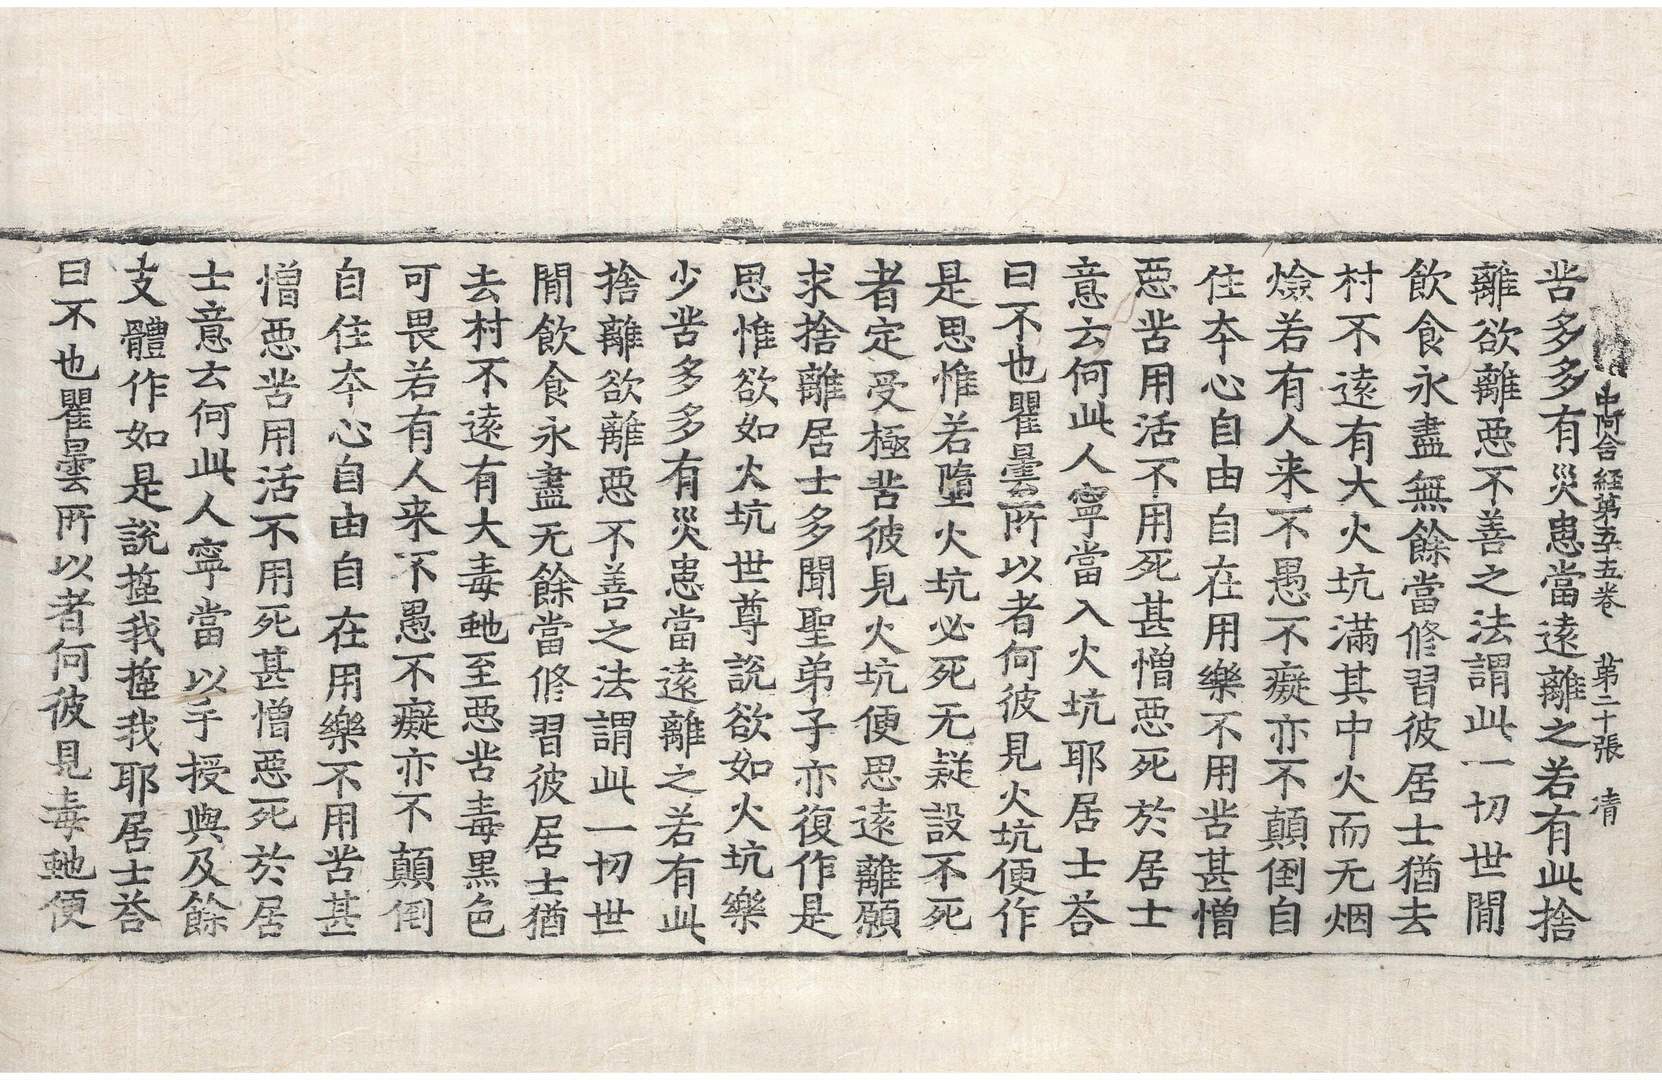 中阿含經第五十五卷 第二十張 清
苦多多有災患當遠離之若有此捨
離欲離惡不善之法謂此一切世間
飲食永盡無餘當修習彼居士猶去
村不遠有大火坑滿其中火而无烟
燄若有人来不愚不癡亦不顛倒自
住本心自由自在用樂不用苦甚憎
惡苦用活不用死甚憎惡死於居士
意云何此人寧當入火坑耶居士荅
曰不也瞿曇所以者何彼見火坑便作
是思惟若墮火坑必死无疑設不死
者定受極苦彼見火坑便思遠離願
求捨離居士多聞聖弟子亦復作是
思惟欲如火坑世尊說欲如火坑樂
少苦多多有災患當遠離之若有此
捨離欲離惡不善之法謂此一切世
間飲食永盡无餘當修習彼居士猶
去村不遠有大毒虵至惡苦毒黑色
可畏若有人来不愚不癡亦不顛倒
自住本心自由自在用樂不用苦甚
憎惡苦用活不用死甚憎惡死於居
士意云何此人寧當以手授與及餘
支體作如是說蜇我蜇我耶居士荅
曰不也瞿曇所以者何彼見毒虵便